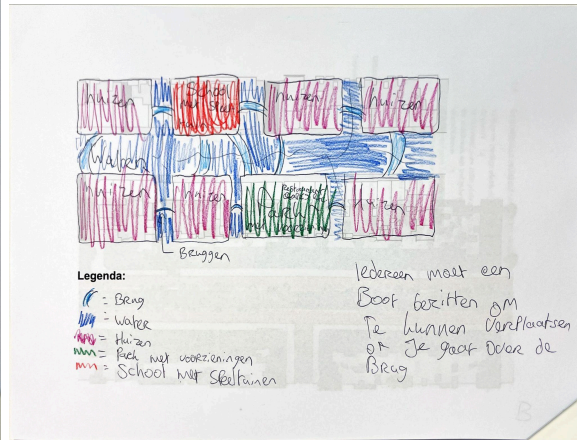 huizen
School
met Speel
huizen
huizen
Water
huizen
huizen
Park
huizen
Bruggen
Legenda:
= Brug
= Water
= Huizen
= Park met voorzieningen
= School met Speeltuinen
Iedereen moet een
Boot bezitten om
Te kunnen verplaatsen
of Je gaat over de
Brug
B